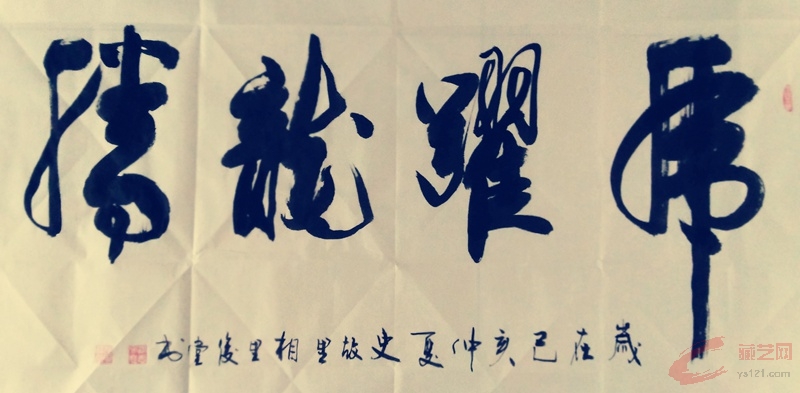 虎躍龍騰
歲在己亥仲夏史故里相里堂书
藏艺网
ys121.com